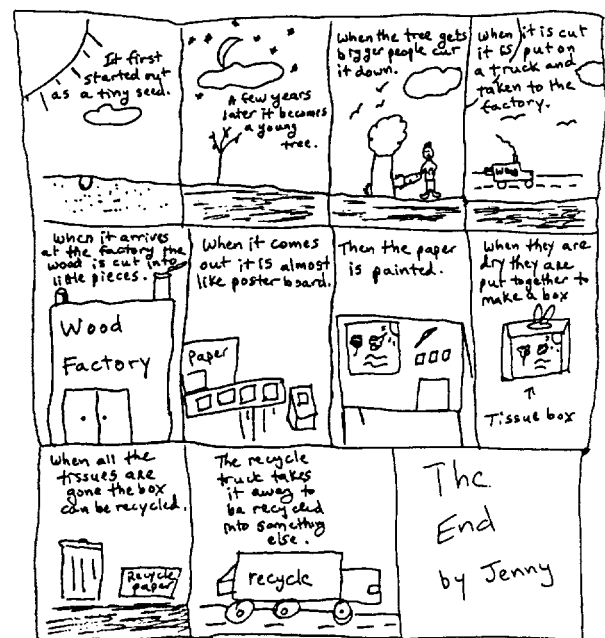 It first
started out
as a tiny seed.
A few years
later it becomes
a young
tree.
When the tree gets
bigger people cut
it down.
When it is cut
it is put on
a truck and
taken to the
factory.
Wood
When it arrives
at the factory the
wood is cut into
little pieces.
Wood
Factory
When it comes
out it is almost
like poster board.
Paper
Then the paper
is painted.
When they are
dry they are
put together to
make a box
Tissue box
When all the
tissues are
gone the box
can be recycled.
Recycle
paper
The recycle
truck takes
it away to
be recycled
into something
else.
recycle
The
End
by Jenny